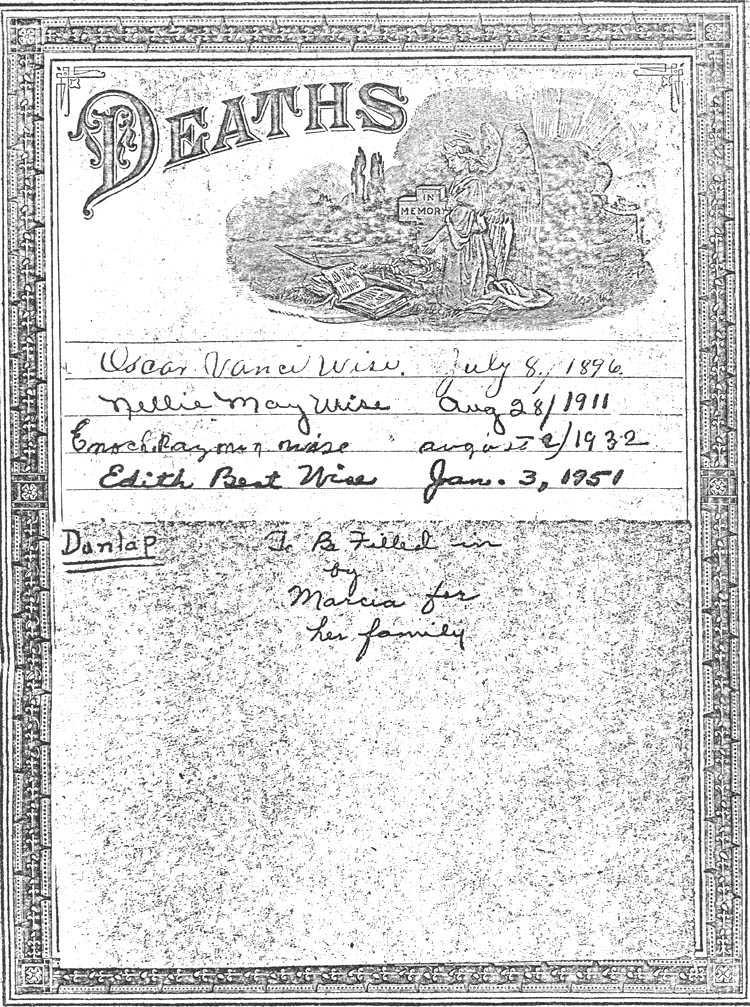 DEATHS
IN
MEMORY
Oscar Vance Wise. July 8, 1896.
Nellie May Wise Aug 28/1911
Enoch Raymon Wise august 2/1932
Edith Best Wise Jan. 3, 1951
Dunlap To Be Filled in
by
Marcia for
her family